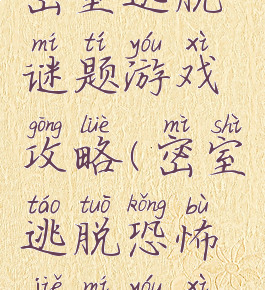 密室逃脱
mí tí yóu xì
谜题游戏
gōng lüè mì shì
攻略(密室
táo tuō kǒng bù
逃脱恐怖
jiě mí yóu xì